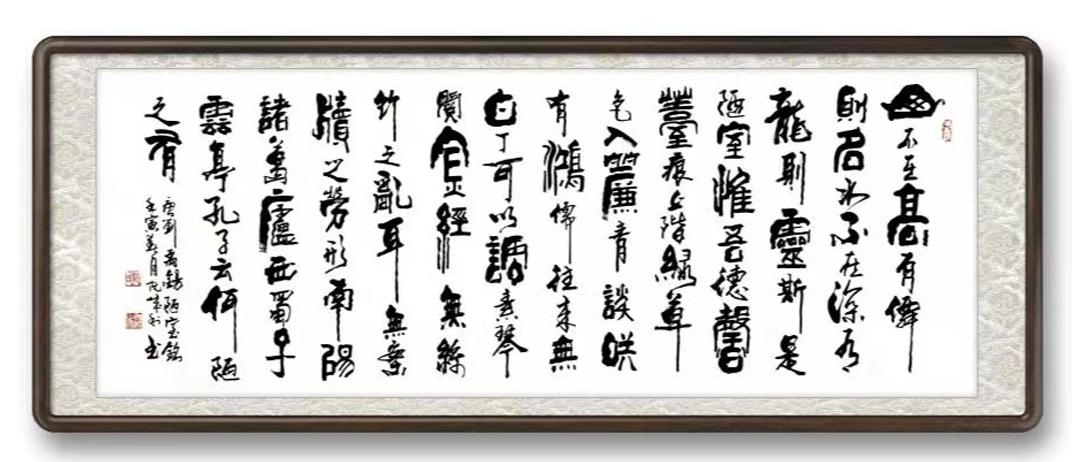 山不在高有僊
則名水不在深有
龍則靈斯是
陋室惟吾德馨
薹痕上階綠草
色入簾青談咲
有鴻儒往来無
白丁可以調素琴
閱金經無絲
竹之亂耳無案
牘之勞形南陽
諸葛廬西蜀子
雲亭孔子云何陋
之有
唐劉禹錫陋室銘
壬寅月书